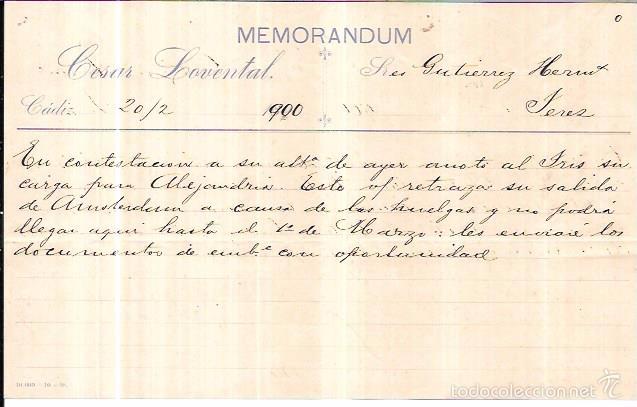 MEMORANDUM
Cesar Lovental. Sres Gutierrez Hermˢ
Cádiz 20/2 1900 Jerez
En contestacion a su attª de ayer anoto al Iris su
carga para Alejandria. Este vpʳ retraza su salida
de Amsterdam a causa de las huelgas y no podrá
llegar aqui hasta el 1º de Marzo: les enviaré los
documentos de embᵉ con oportunidad
todocoleccion.net